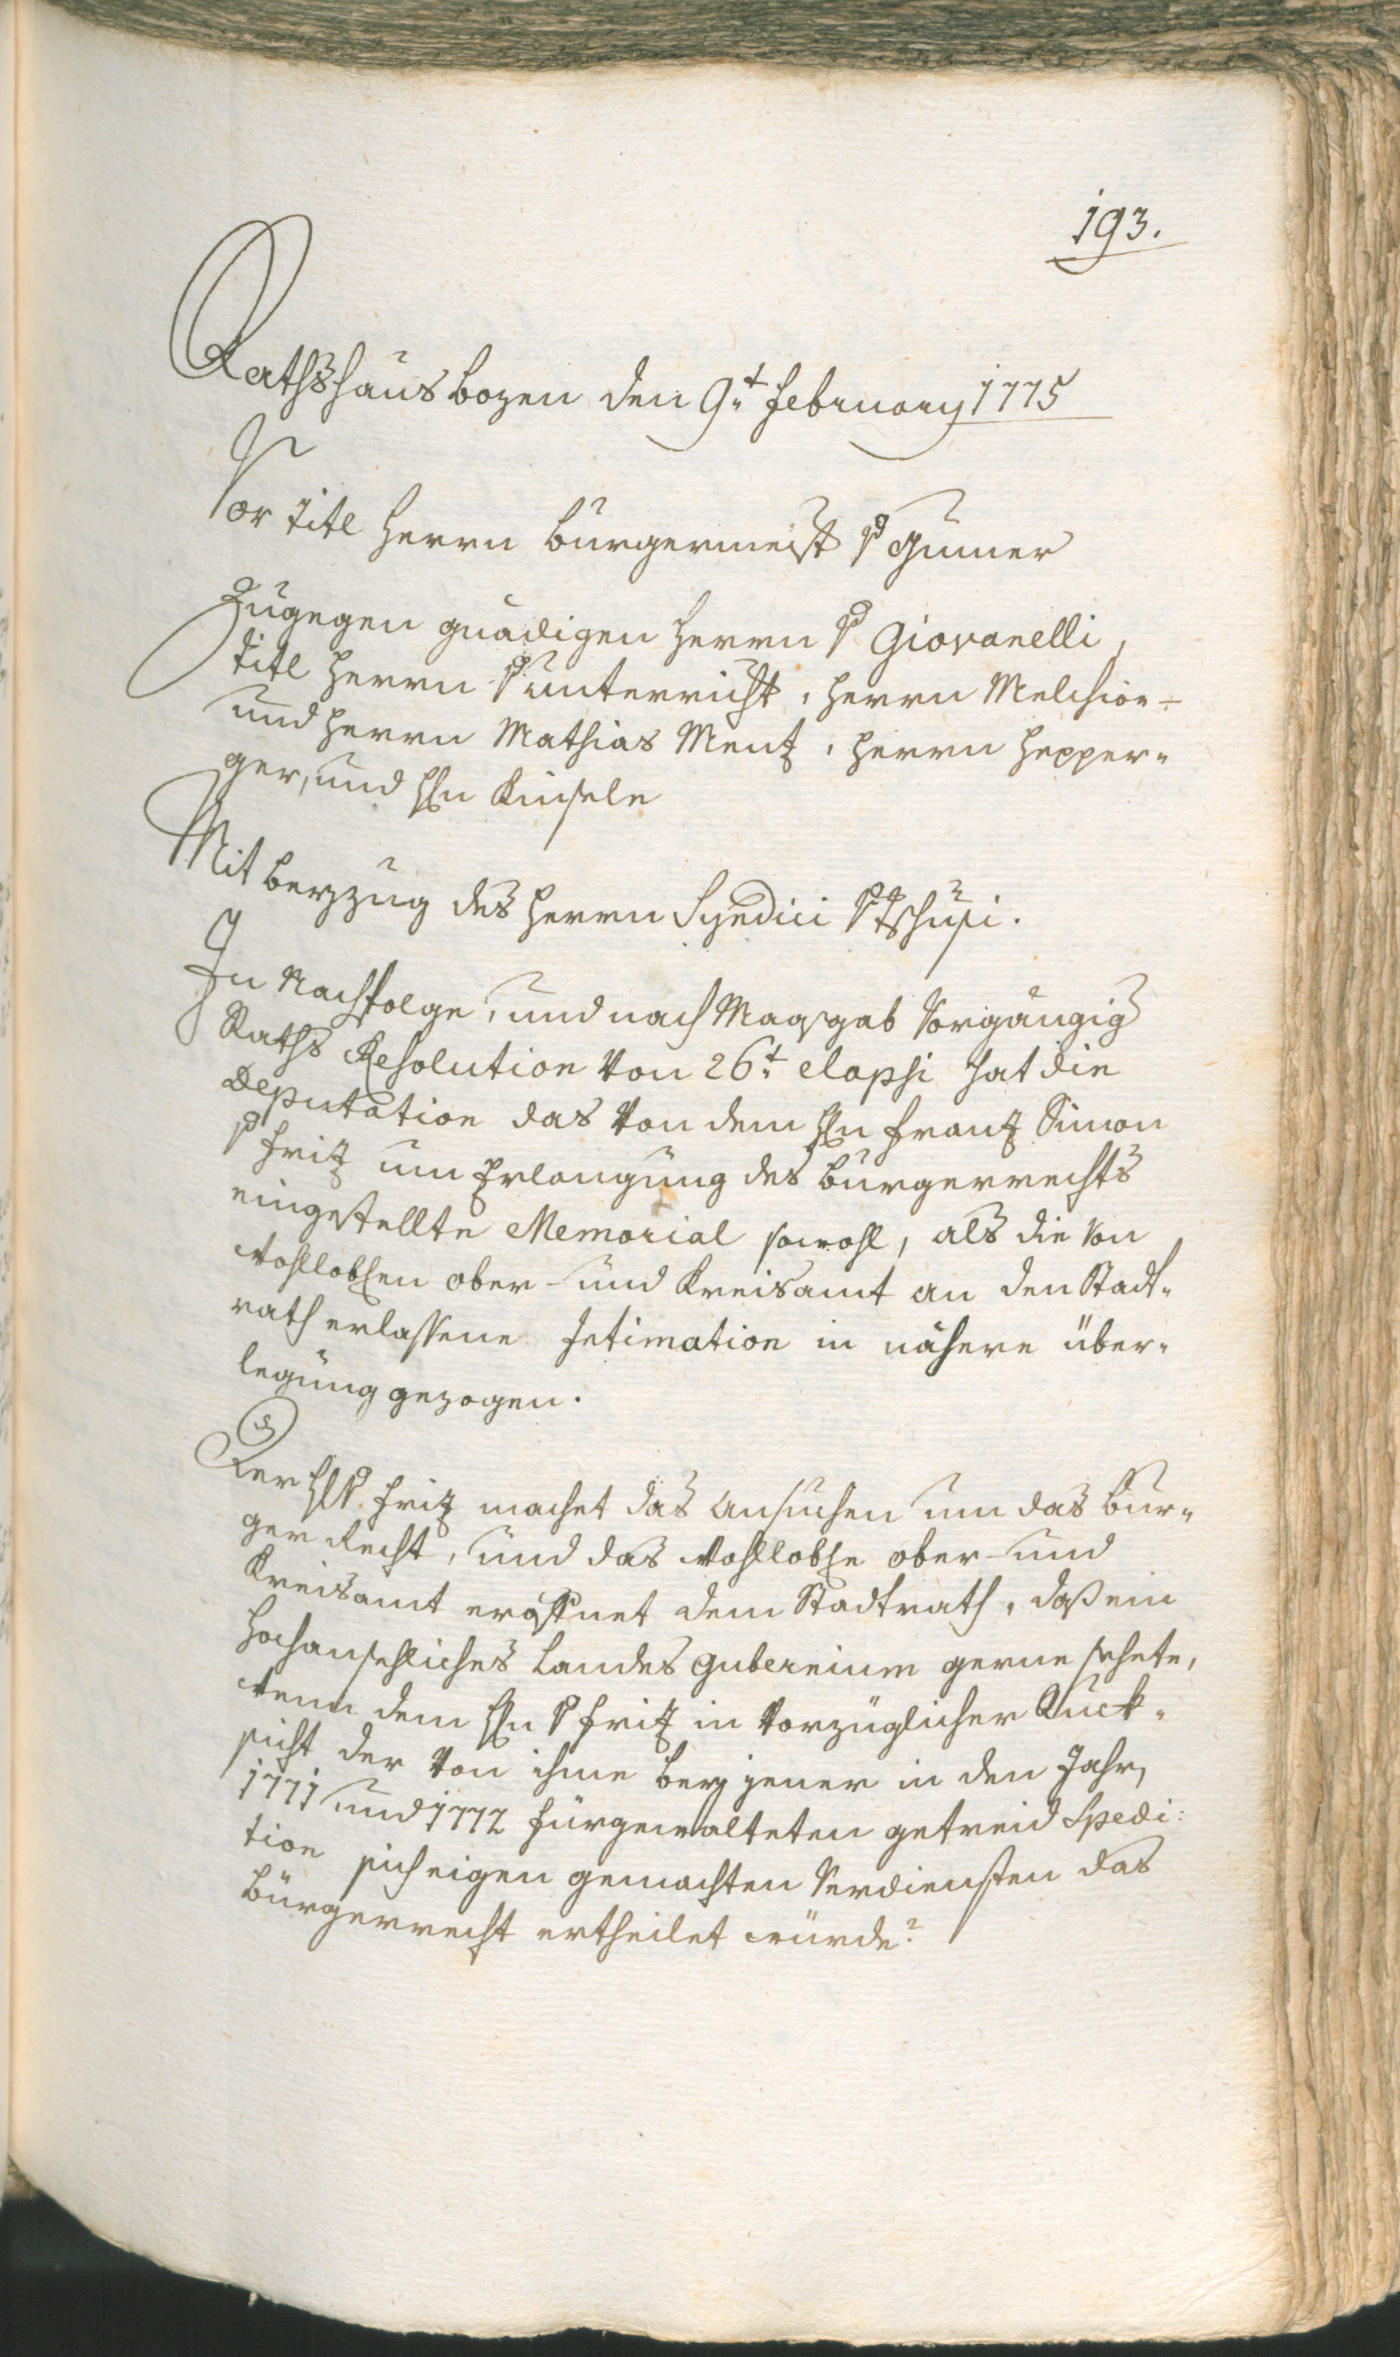 193.
Rathshaus Bozen den 9.t February 1775
Vor Titl Herrn Burgermeist v Gumer
Zugegen gnädigen Herrn v Giovanelli,
Titl Herrn v Unterricht, Herrn Melchior-
und Herrn Mathias Mentz, Herrn Hepper-
ger, und Hn Kinsele
Mit Beyzug des Herrn Syndici v Tschusi.
In Nachfolge, und nach Maasgab Vorgängig
Raths Resolution von 26.t elapsi hat die
Deputation das von dem Hn Frantz Simon
v Fritz um Erlangung des Burgerrechts
eingestellte Memorial sowohl, als die von
wohllobhen ober- und Kreisamt an den Stadt-
rath erlassene Intimation in nähere über-
legung gezogen.
Der H v. Fritz machet das Ansuchen um das Bur-
ger Recht, und das wohllobhe ober- und
Kreisamt eröffnet dem Stadtrath, daß ein
Hochansehliches Landes Gubernium gerne sehete,
wenn dem Hn v Fritz in Vorzüglicher Ruck-
sicht der von ihme bey jener in den Jahr,
1771 und 1772 fürgewalteten getreid Spedi-
tion sich eigen gemachten Verdiensten das
Bürgerrecht ertheilet würde?